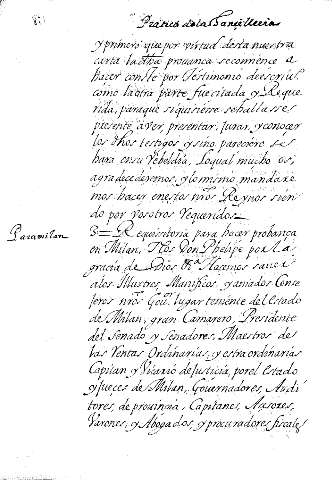 Pratica de la Chancilleria
y primero que por virtud desta nuestra
carta la dha provança se comience a
hacer conste por testimonio de escriu.
como la otra parte fue citada y Reque
rida, para que si quisiere se halle
presente, a ver, presentar, Jurar, y conocer
los dhos testigos y si no parecere se
hara en su Rebeldia, lo qual mucho os
agradeceremos, y lo mismo mandare
mos hacer en estos nros Reynos sien
do por vosotros Requeridos
Para milan
3 = Requisitoria para hacer probança
en Milan, Nos Don Phelipe por La
gracia de Dios &a Hacemos saver
a los Illustres, Munificos, y amados Conse
jeros nros Gou.r lugar teniente del Estado
de Milan, gran Camarero, Presidente
del Senado y Senadores, Maestros de
las Rentas Ordinarias, y estraordinarias
Capitan y Vicario de Justicia, por el Estado
y Jueçes de Milan, Governadores, Audi
tores, de provincia, Capitanes, Asesores,
Varones, y Abogados, y procuradores fiscales